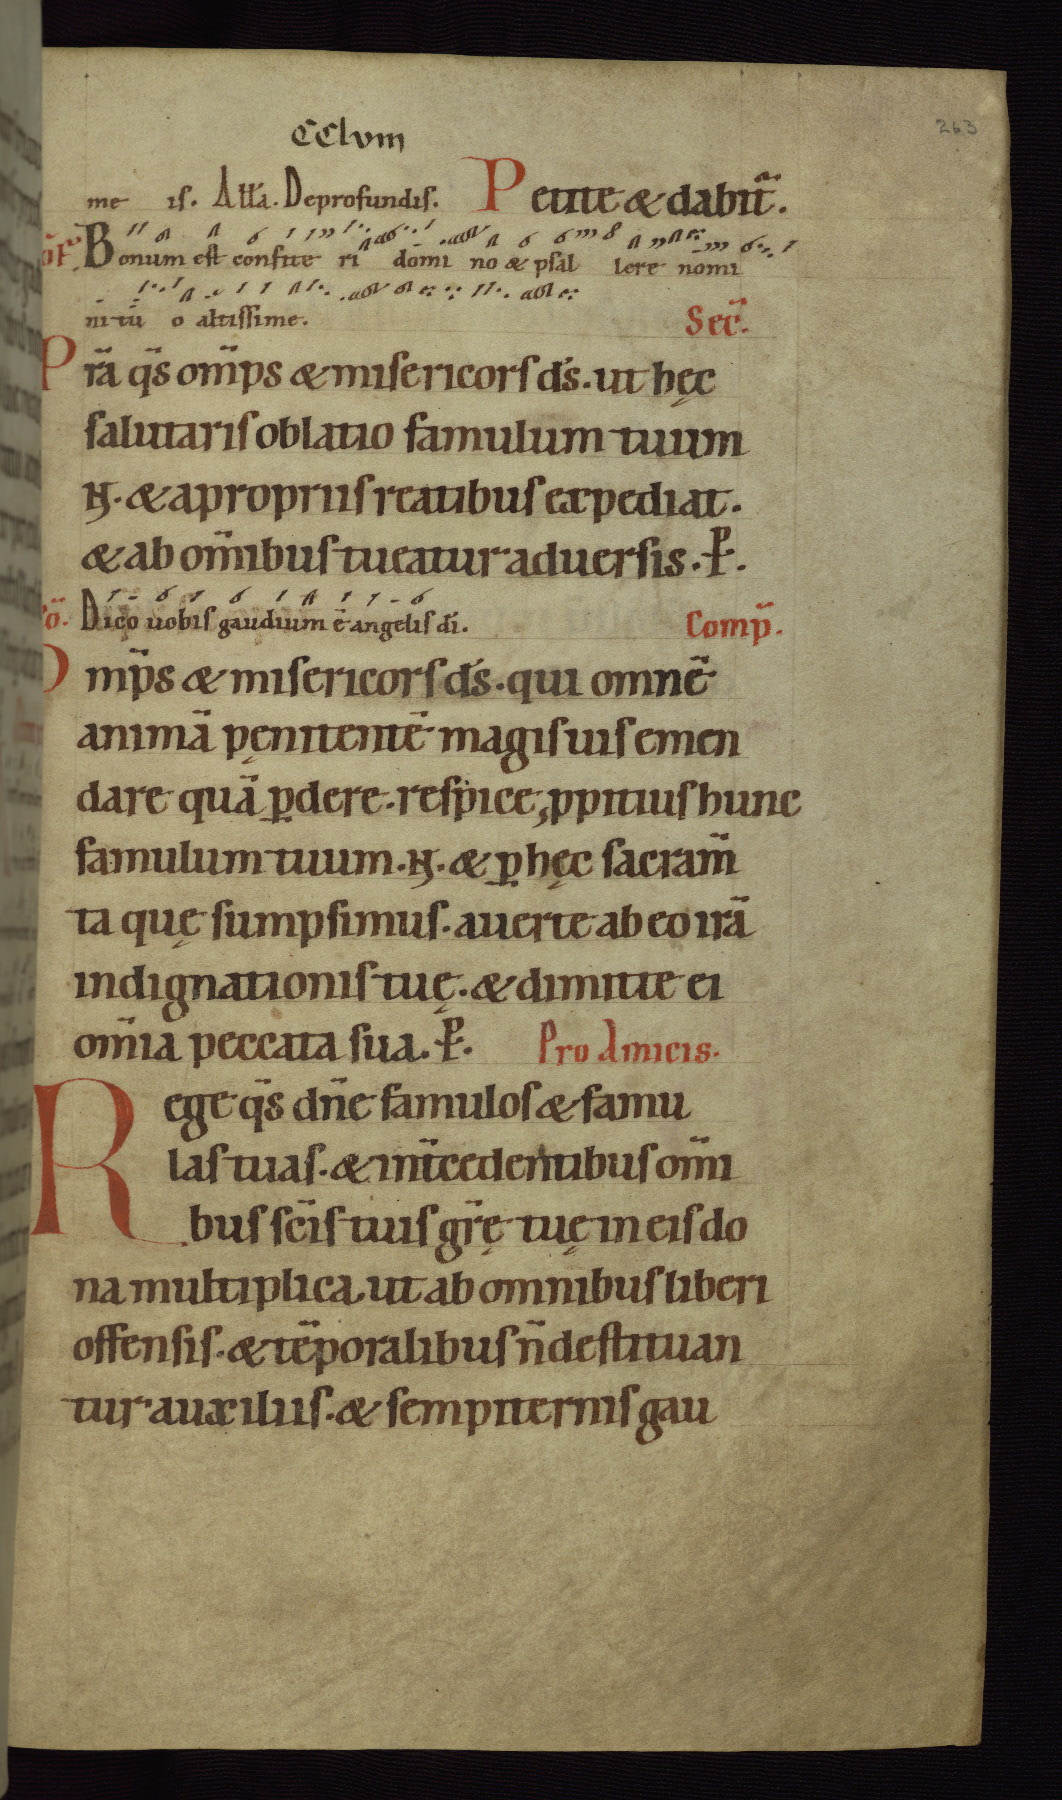 CClviii
263
me is. Alla. Deprofundis. Petite & dabit̄.
of̄. Bonum est confite ri domi no & psal lere nomi
ni tuo o altissime. Sec̄.
Pr̄a q̄s om̄ps & misericors d̄s. ut hęc
salutaris oblatio famulum tuum
N. & a propriis reatibus expediat.
& ab om̄ibus tueatur aduersis. P.
cō. Dico uobis gaudium ē angelis dī.  Comp̄.
Om̄ps & misericors d̄s. qui omnē
animā pęnitentē magis uis emen
dare quā ꝑdere. respice ꝓpitius hunc
famulum tuum. N. & ꝑ hęc sacram̄
ta quę sumpsimus. auerte ab eo irā
indignationis tuę. & dimitte ei
om̄ia peccata sua. P. Pro Amicis.
Rege q̄s dn̄e famulos & famu
las tuas. & int̄cedentibus om̄i
bus sc̄is tuis gr̄ę tuę in eis do
na multiplica. ut ab omnibus liberi
offensis. & tēporalibus n̄ destituan
tur auxiliis. & sempiternis gau